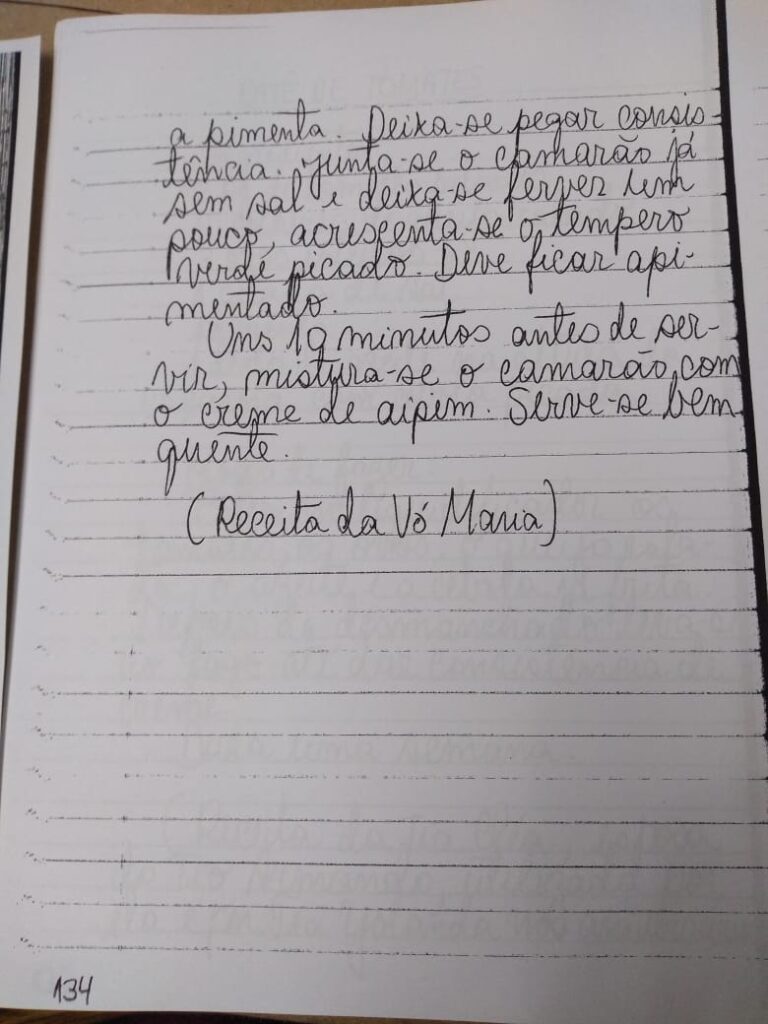 a pimenta. Deixa-se pegar consis-
tência. Junta-se o camarão já
sem sal e deixa-se ferver um
pouco, acrescenta-se o tempero
verde picado. Deve ficar api-
mentado.
Uns 10 minutos antes de ser-
vir, mistura-se o camarão com
o creme de aipim. Serve-se bem
quente.
(Receita da Vó Maria)
134